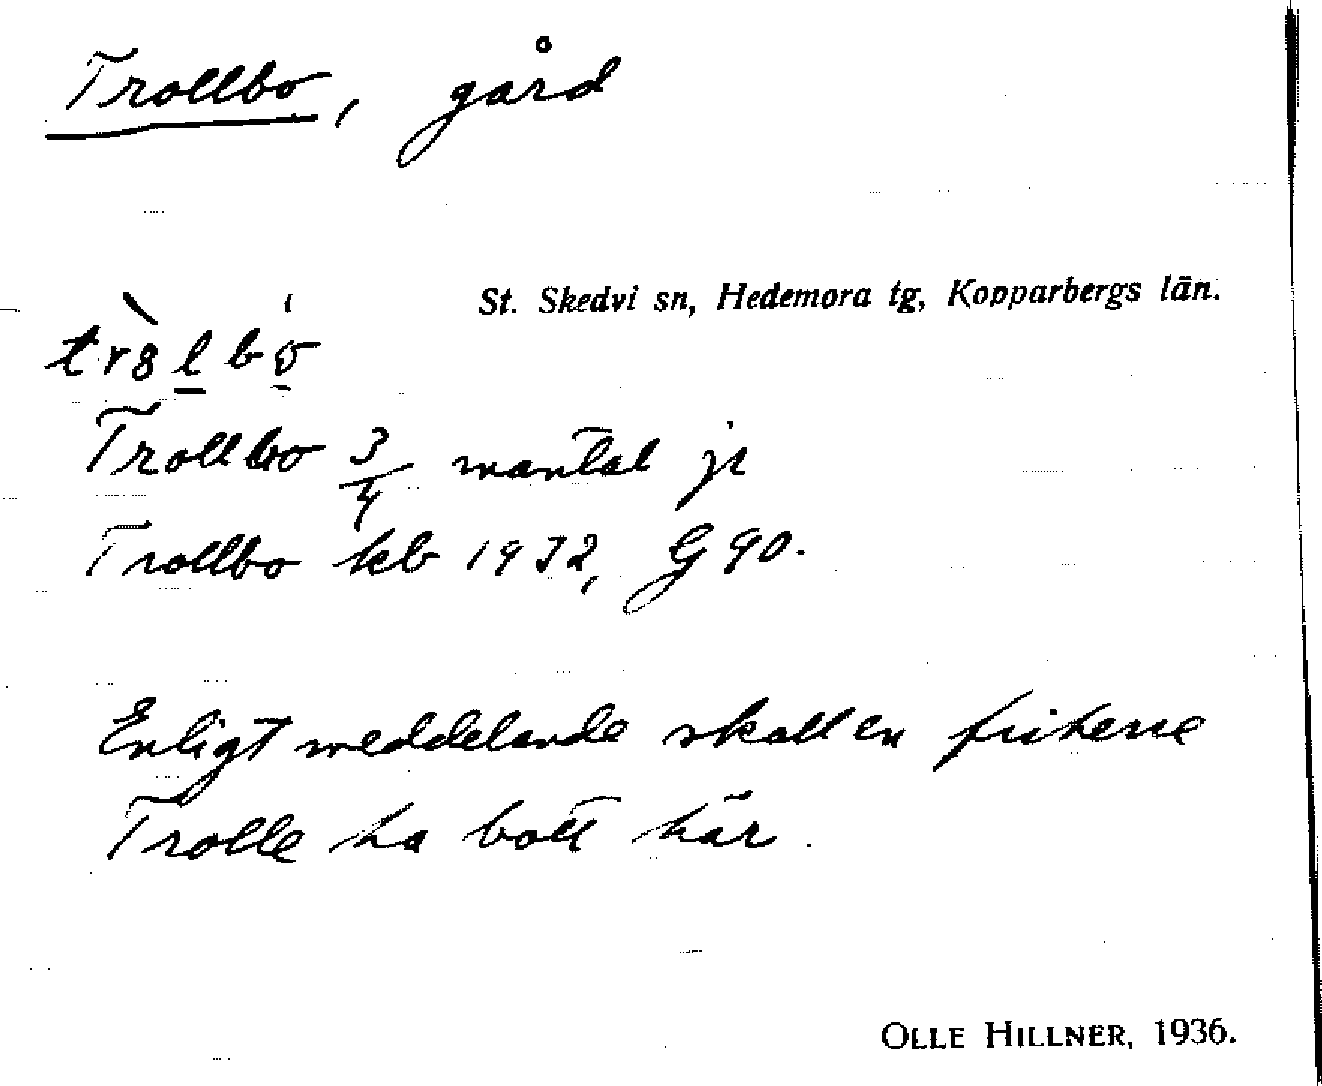 Trollbo, gård
St. Skedvi sn, Hedemora tg, Kopparbergs län.
Trollbo 3/4 mantal jr
Trollbo kb 1932, G 90.
Enligt meddelande skall en friherre
Trolle ha bott här.
OLLE HILLNER, 1936.